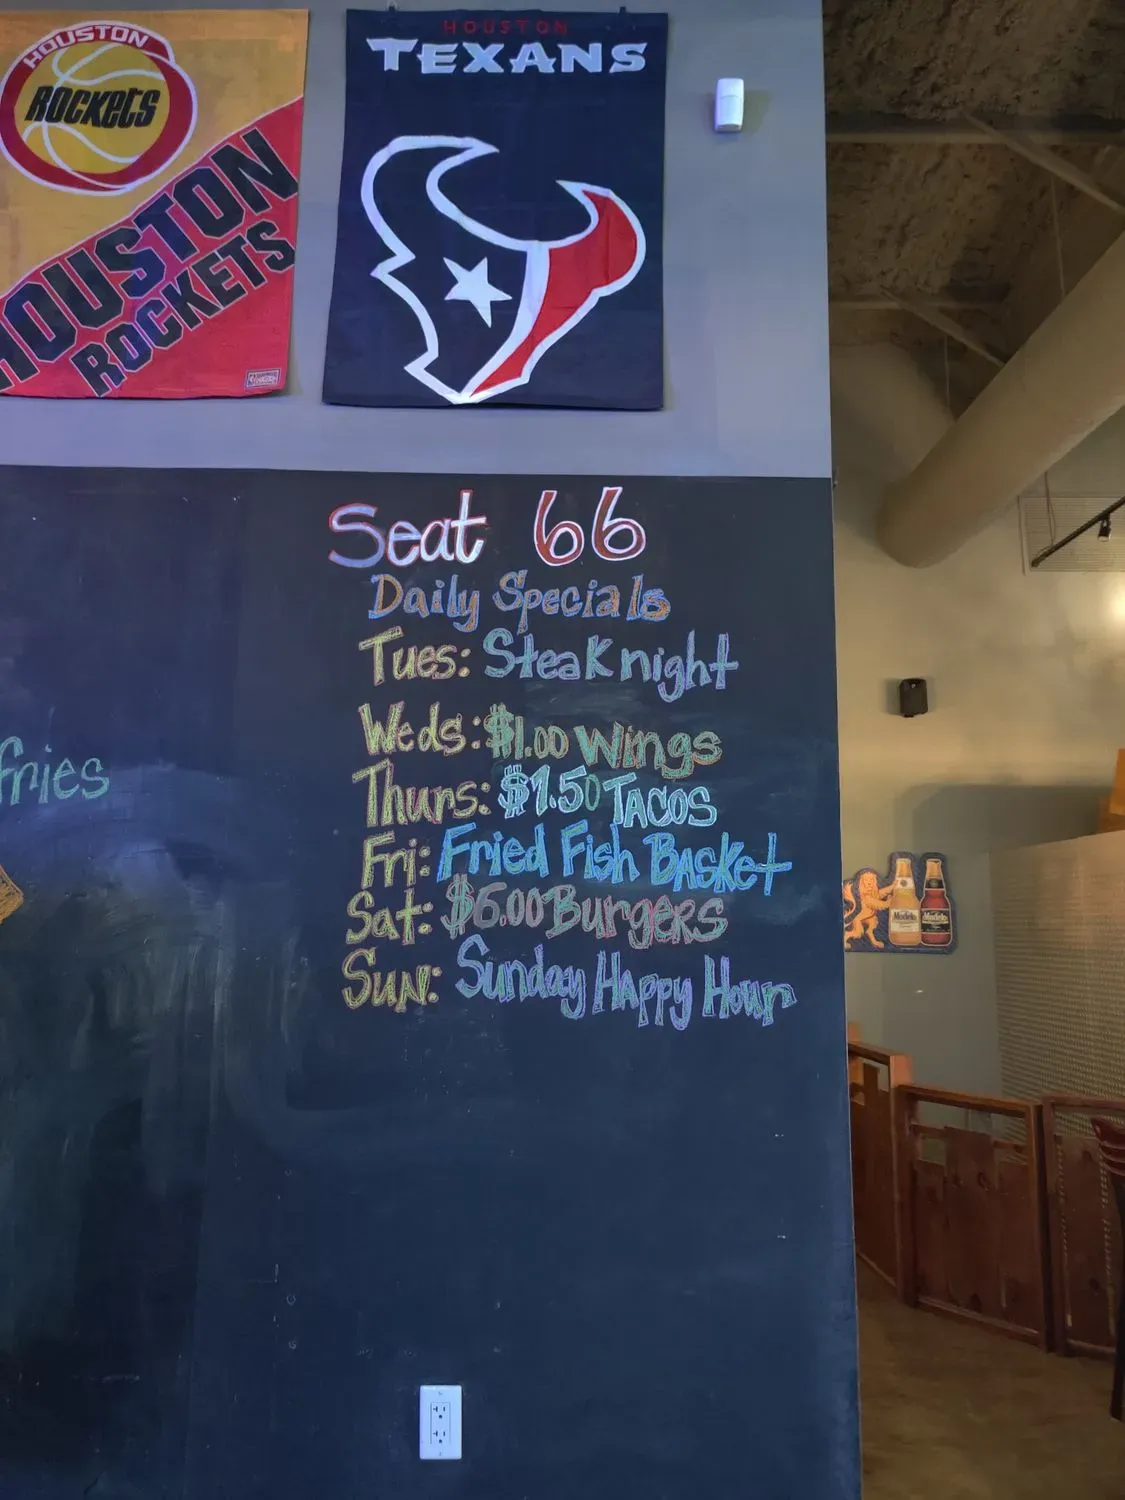 HOUSTON
ROCKETS
HOUSTON
ROCKETS
HOUSTON
TEXANS
Seat 66
Daily Specials
Tues: Steak night
Weds: $1.00 Wings
Thurs: $1.50 TACOS
Fri: Fried Fish Basket
Sat: $6.00 Burgers
Sun: Sunday Happy Hour
fries
Modelo
Modelo